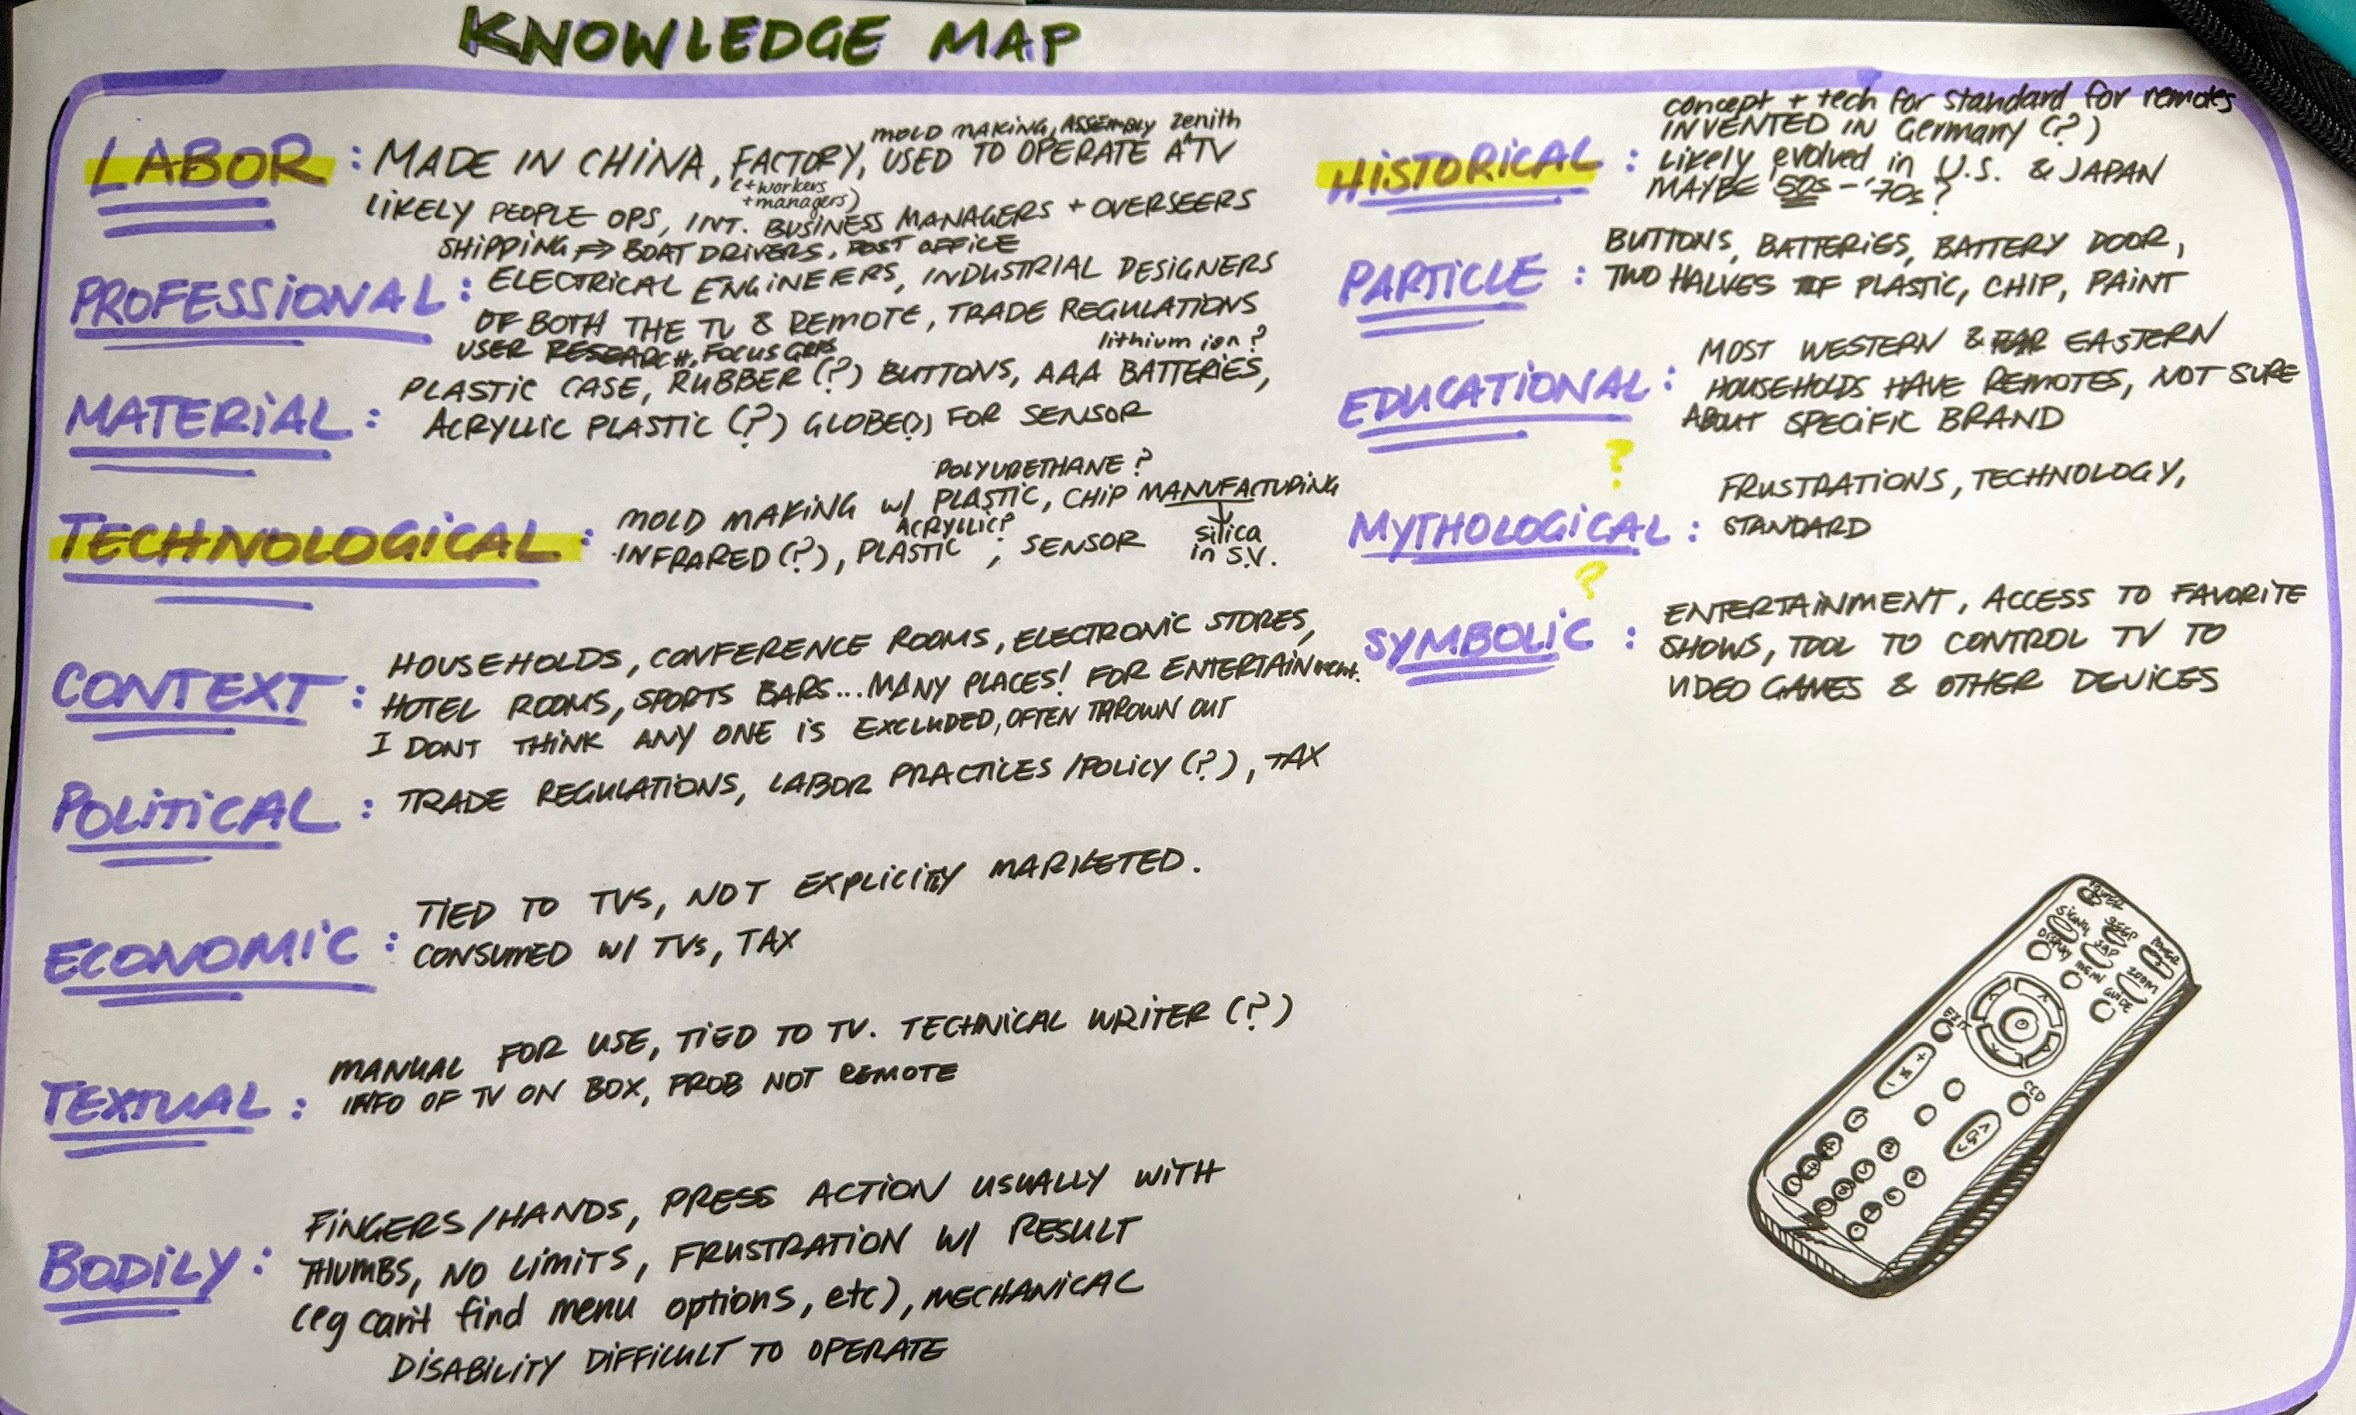 KNOWLEDGE MAP
LABOR :
mold making, ASSEMBLY zenith
MADE IN CHINA, FACTORY, USED TO OPERATE A ^ TV
(+workers
+managers)
LIKELY PEOPLE OPS, INT. BUSINESS MANAGERS + OVERSEERS
SHIPPING → BOAT DRIVERS, POST OFFICE
PROFESSIONAL :
ELECTRICAL ENGINEERS, INDUSTRIAL DESIGNERS
OF BOTH THE TV & REMOTE, TRADE REGULATIONS
USER RESEARCH, FOCUS GRPS
MATERIAL :
lithium ion?
PLASTIC CASE, RUBBER (?) BUTTONS, AAA BATTERIES,
ACRYLLIC PLASTIC (?) GLOBE(?) FOR SENSOR
TECHNOLOGICAL :
POLYURETHANE?
MOLD MAKING W/ PLASTIC, CHIP MANUFACTURING
ACRYLLIC?
INFRARED (?), PLASTIC, SENSOR
silica
in S.V.
CONTEXT :
HOUSEHOLDS, CONFERENCE ROOMS, ELECTRONIC STORES,
HOTEL ROOMS, SPORTS BARS... MANY PLACES! FOR ENTERTAINment.
I DONT THINK ANY ONE IS EXCLUDED, OFTEN THROWN OUT
POLITICAL :
TRADE REGULATIONS, LABOR PRACTICES /POLICY (?), TAX
ECONOMIC :
TIED TO TVS, NOT EXPLICITLY MARKETED.
CONSUMED W/ TVs, TAX
TEXTUAL :
MANUAL FOR USE, TIED TO TV. TECHNICAL WRITER (?)
INFO OF TV ON BOX, PROB NOT REMOTE
BODILY :
FINGERS/HANDS, PRESS ACTION USUALLY WITH
THUMBS, NO LIMITS, FRUSTRATION W/ RESULT
(eg can't find menu options, etc), MECHANICAL
DISABILITY DIFFICULT TO OPERATE
HISTORICAL :
concept + tech for standard for remotes
INVENTED IN Germany (?)
Likely evolved in U.S. & JAPAN
MAYBE 50s - '70s?
PARTICLE :
BUTTONS, BATTERIES, BATTERY DOOR,
TWO HALVES OF PLASTIC, CHIP, PAINT
EDUCATIONAL :
MOST WESTERN & FAR EASTERN
HOUSEHOLDS HAVE REMOTES, NOT SURE
ABOUT SPECIFIC BRAND
?
MYTHOLOGICAL :
FRUSTRATIONS, TECHNOLOGY,
STANDARD
?
SYMBOLIC :
ENTERTAINMENT, ACCESS TO FAVORITE
SHOWS, TOOL TO CONTROL TV TO
VIDEO GAMES & OTHER DEVICES
POWER
SIGNAL
SLEEP
DISPLAY
SAP
ZOOM
MENU
GUIDE
EXIT